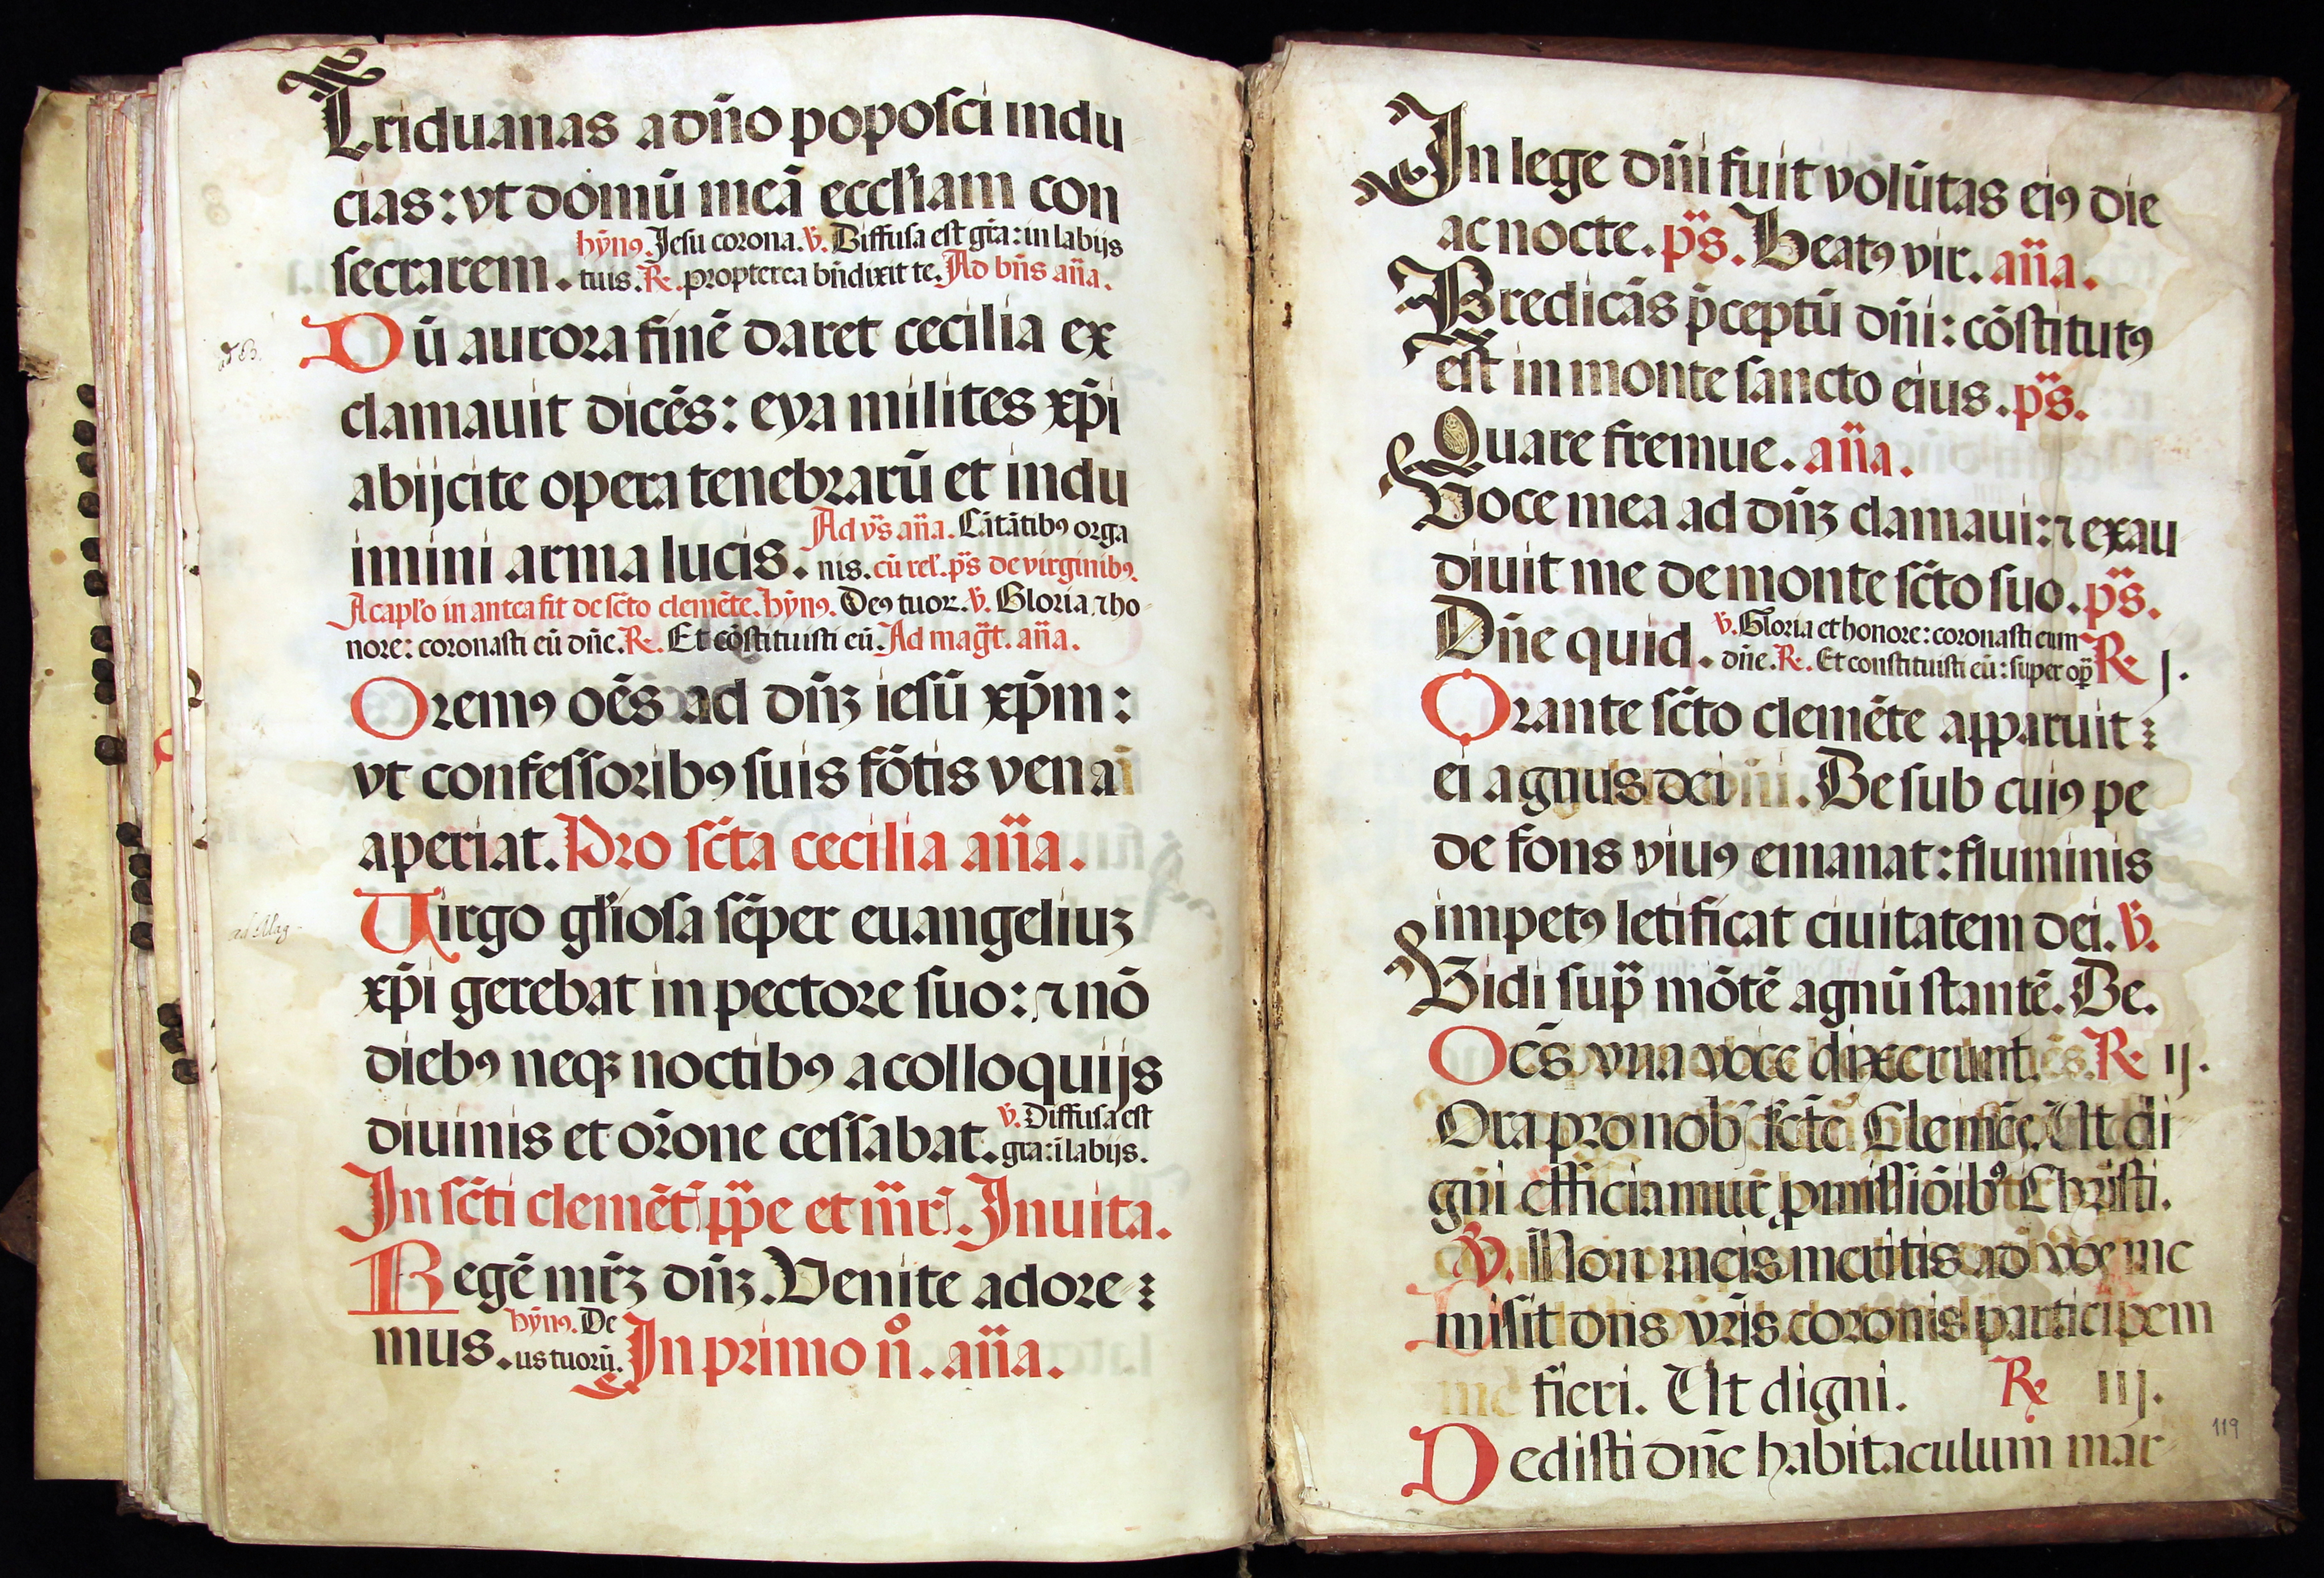 Triduanas a dn̄o poposci indu
cias: vt domū meā eccl'iam con
secrarem. hȳnꝰ. Jesu corona. v̄. Diffusa est gr̄a: in labijs
tuis. R. propterea bn̄dixit te. Ad bn̄s an̄a.
Dū aurora finē daret cecilia ex
ad B.
clamauit dicēs: eya milites xp̄i
abijcite opera tenebrarū et indu
imini arma lucis. Ad vs̄ an̄a. Cātātibꝰ orga
nis. cū rel'. ps̄ de virginibꝰ.
A capl'o in antea fit de sc̄to clemēte. hȳnꝰ. Deꝰ tuor. v̄. Gloria ⁊ ho
nore: coronasti eū dn̄e. R. Et cōstituisti eū. Ad maḡt. an̄a.
Oremꝰ oēs ad dn̄ꝫ iesū xp̄m:
vt confessoribꝰ suis fōtis vena
aperiat. Pro sc̄ta cecilia an̄a.
Uirgo gl'iosa sēper euangeliuꝫ
ad Mag
xp̄i gerebat in pectore suo: ⁊ nō
diebꝰ neqꝫ noctibꝰ a colloquijs
diuinis et or̄one cessabat. v̄. Diffusa est
gr̄a: ī labijs.
In sc̄ti clemēt' pp̄e et mr̄'. Inuita.
Regē mr̄ꝫ dn̄ꝫ. Venite adore
mus. hȳnꝰ. De
us tuorū. In primo n̄o. an̄a.
In lege dn̄i fuit volūtas eiꝰ die
ac nocte. ps̄. Beatꝰ vir. an̄a.
Predicās p̄ceptū dn̄i: cōstitutꝰ
est in monte sancto eius. ps̄.
Quare fremue. an̄a.
Voce mea ad dn̄ꝫ clamaui: ⁊ exau
diuit me de monte sc̄to suo. ps̄.
Dn̄e quid. v̄. Gloria et honore: coronasti eum
dn̄e. R. Et constituisti eū: super op̄ R j.
Orante sc̄to clemēte apparuit
ei agnus dei. De sub cuiꝰ pe
de fons viuꝰ emanat: fluminis
impetꝰ letificat ciuitatem dei. v̄.
Vidi sup̄ mōtē agnū stantē. De.
Oēs vna voce dixerunt. R ij.
Ora pro nob' sc̄te Clemēs. Ut di
gni efficiamur ꝓmissiōibꝰ Christi.
v̄. Non meis meritis ad vos me
misit dn̄s vr̄is coronis participem
fieri. Ut digni. R iij.
Dedisti dn̄e habitaculum mar
119